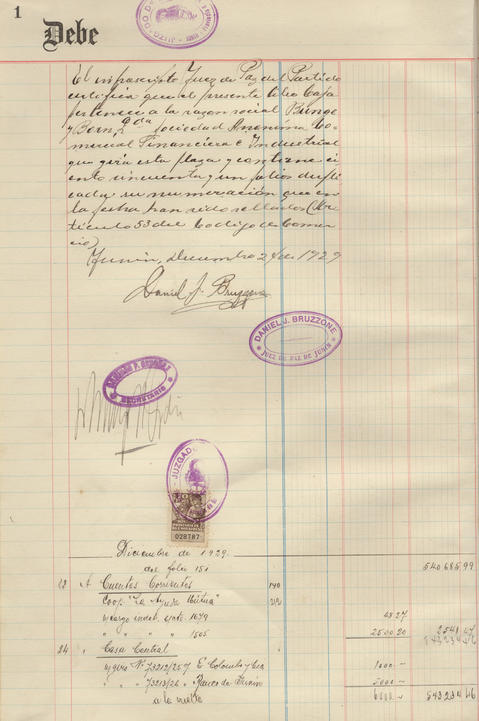 1
Debe
El infrascripto Juez de Paz del Partido
certifica que el presente libro Caja
pertenece a la razon social Bunge
y Born Lda Sociedad Anonima Co-
mercial Financiera e Industrial
que gira esta plaza y contiene ci
ento cincuenta y un folios dupli
cada su numeración que en
la fecha han sido sellados (Ar-
ticulo 53 del Codigo de Comer
cio)
Junin, Diciembre 24 de 1929
Daniel J. Bruzzone
DANIEL J. BRUZZONE
JUEZ DE PAZ DE JUNIN
SECRETARIO
JUZGADO
028787
Diciembre de 1929
del folio 151 540685 99
A Cuentas Corrientes 140
Coop. "La Ayuda Mútua"
n/cargo 1679 43 27
" " " " 1505 2500.20 2541 47
24 " Casa Central
n/giro Nº 73212/257 E. Colombo y Cia 1000 -
" " 73213/26 Banco de Junin 5000 -
a la vuelta 6000 - 543234 46